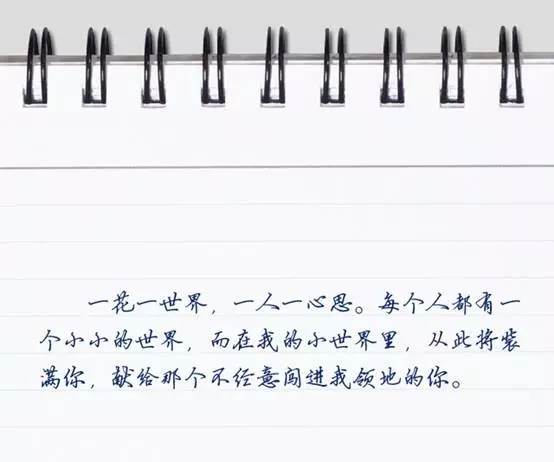 一花一世界，一人一心思。每个人都有一
个小小的世界，而在我的小世界里，从此将装
满你，献给那个不经意闯进我领地的你。